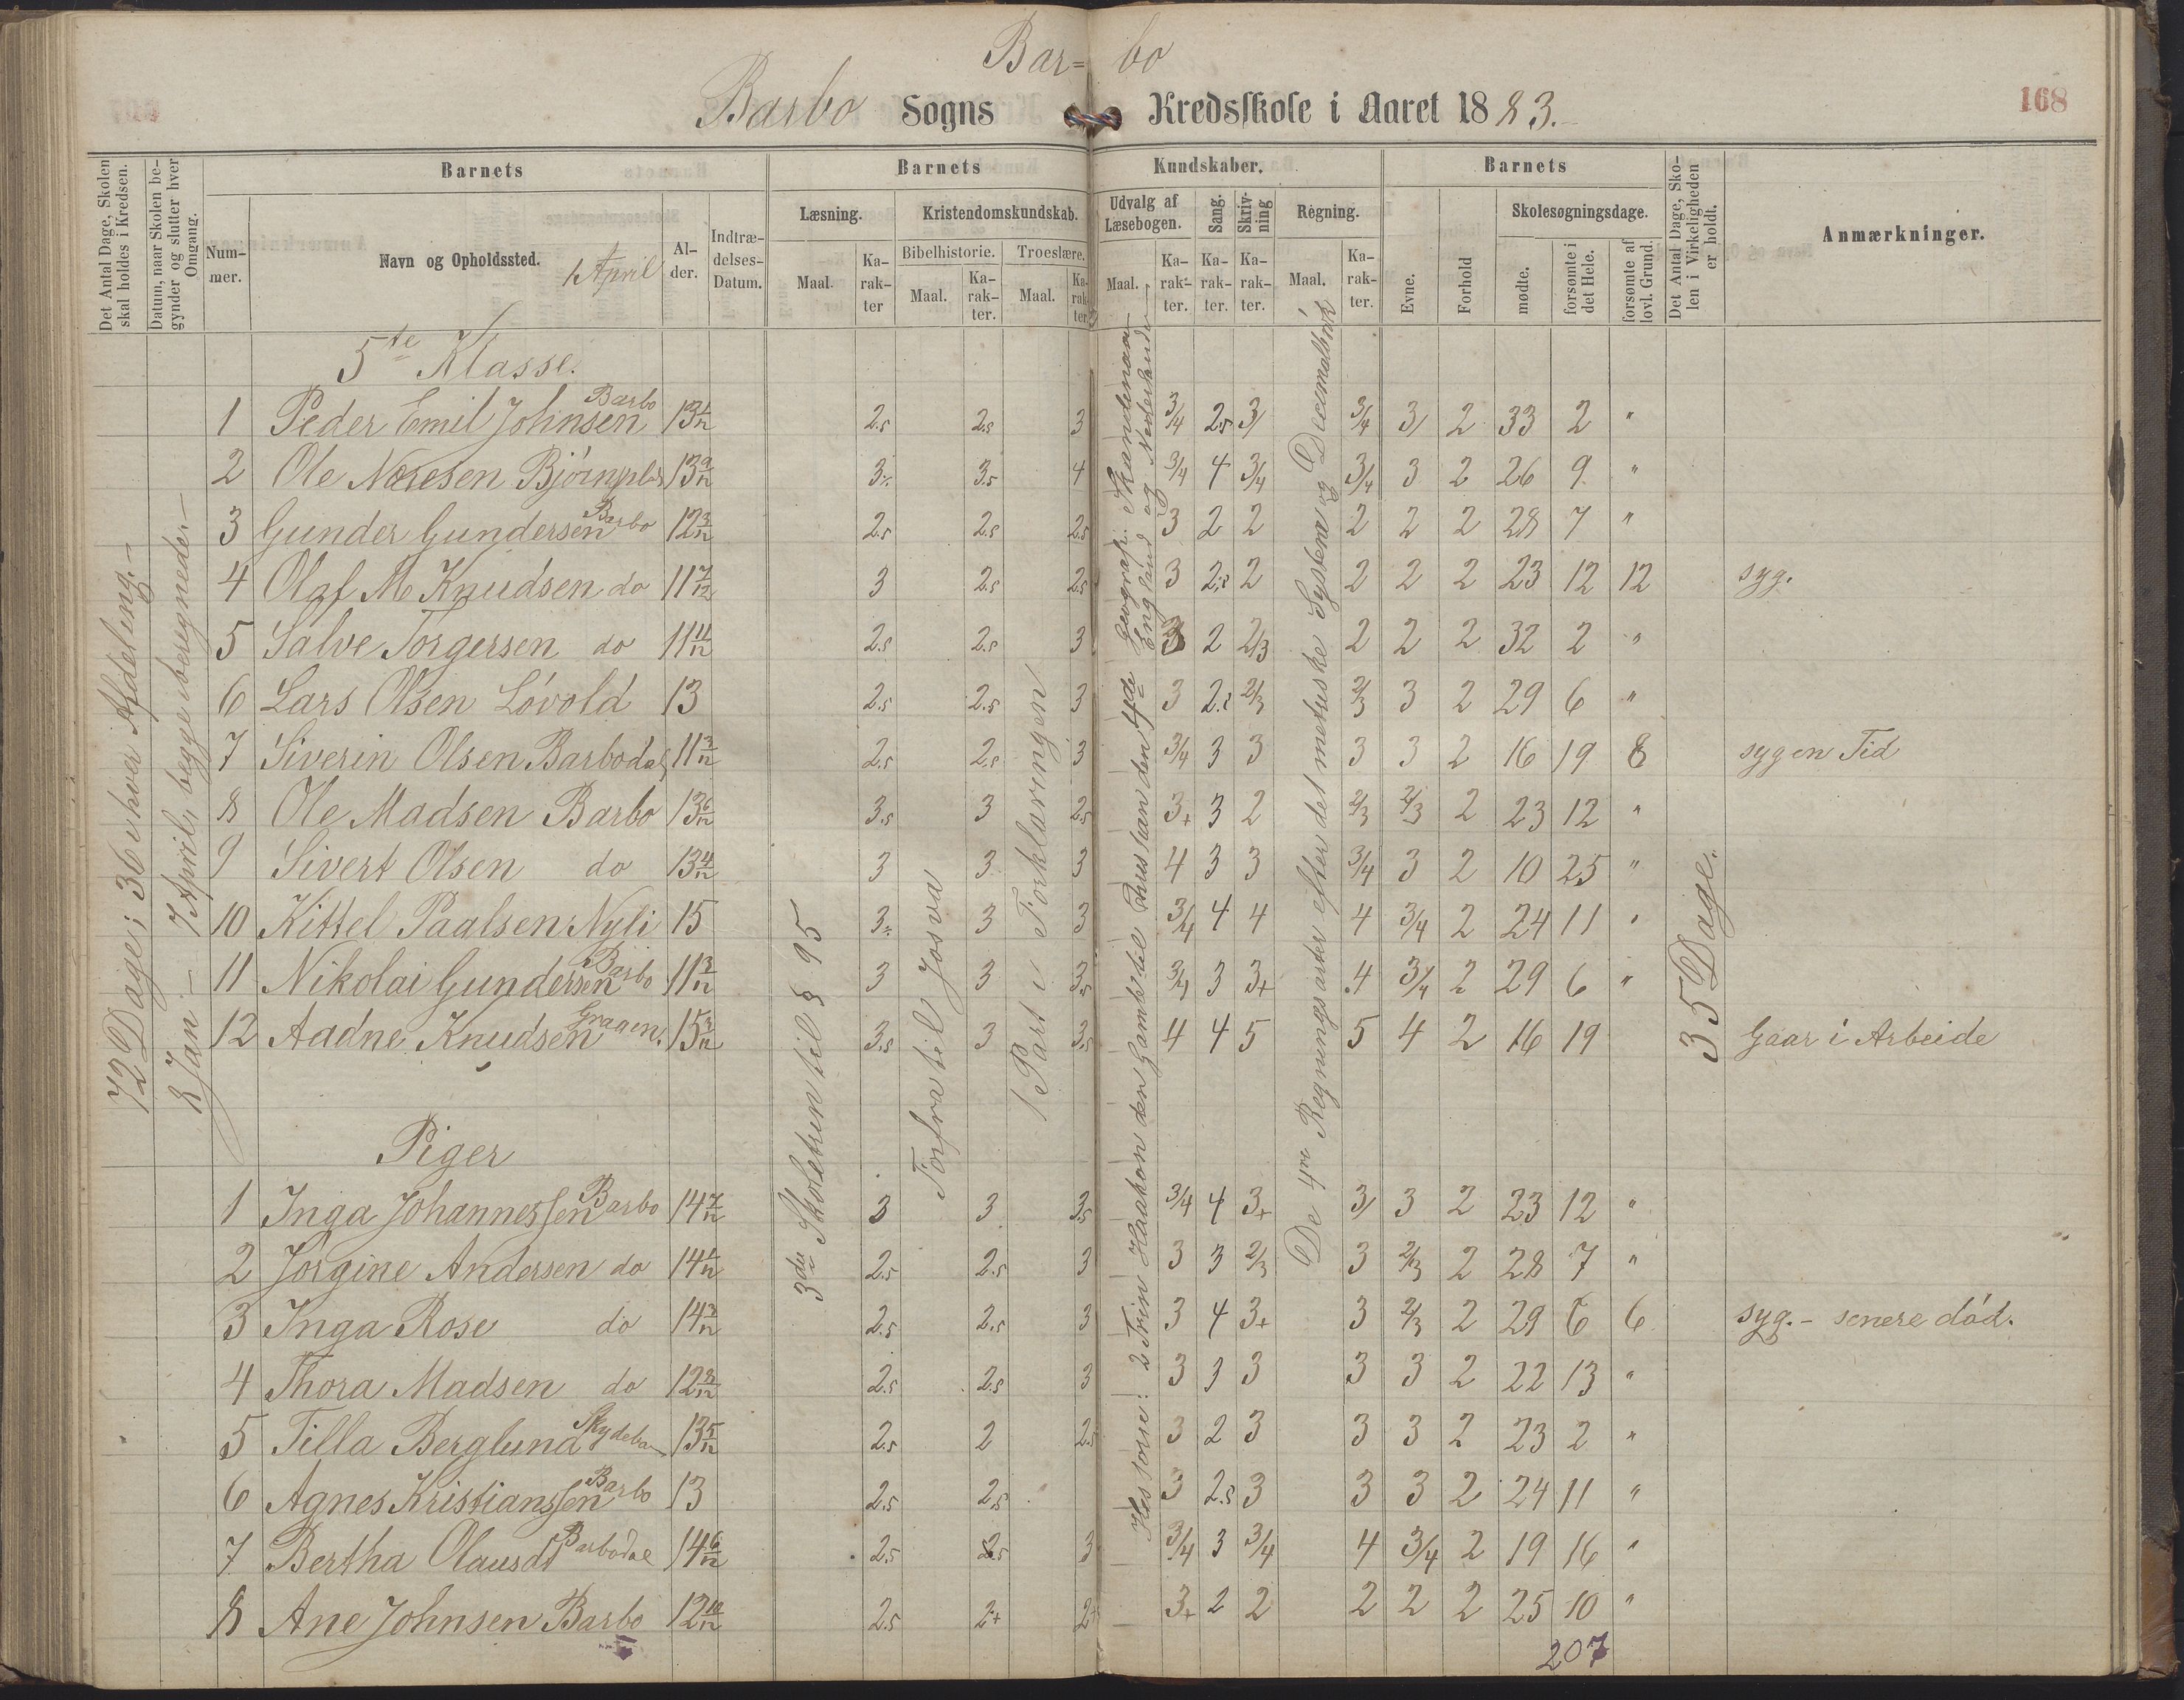 Bar= bo
Barbo Sogns Kredsskole i Aaret 1883.
168
Det Antal Dage, Skolen skal holdes i Kredsen.
Datum, naar Skolen begynder og slutter hver Omgang.
Barnets
Nummer.
Navn og Opholdssted. 1 April
Alder.
Indtrædelses-Datum.
Barnets Kundskaber.
Læsning.
Maal.
Karakter
Kristendomskundskab.
Bibelhistorie.
Maal.
Karakter.
Troeslære.
Maal.
Karakter
Udvalg af Læsebogen.
Maal.
Karakter.
Sang.
Karakter.
Skrivning
Karakter.
Regning.
Maal.
Karakter.
Barnets
Evne.
Forhold
Skolesøgningsdage.
mødte.
forsømte i det Hele.
forsømte af lovl. Grund.
Det Antal Dage, Skolen i Virkeligheden er holdt.
Anmærkninger.
72 Dage; 36 i hver Afdeling.-
8 Jan - 7 April, begge iberegnede.-
3de Skoletrin til § 95
Forfra til Josva
1 Part i Forklaringen
Historie: 2 Trin Haakon den Gamle til Kristian den 4de
Geografi: Skandinavien England og Nederlandene
De 4re Regningsarter efter det metriske System og Decimalbrøk
35 Dage.
5te Klasse.
1 Peder Emil Johnsen Barbo 13 4/12 2.5 2.5 3 3/4 2.5 3/ 3/4 3/ 2 33 2 "
2 Ole Næsesen Bjørnpls 13 9/12 3 3.5 4 3/4 4 3/4 3/4 3 2 26 9 "
3 Gunder Gundersen Barbo 12 3/12 2.5 2.5 2.5 3 2 2 2 2 2 28 7 "
4 Olaf M Knudsen do 11 7/12 3 2.5 2.5 3 2.5 2 2 2 2 23 12 12 syg.
5 Salve Torgersen do 11 11/12 2.5 2.5 3 3 2 2/3 2 2 2 32 2 "
6 Lars Olsen Løvold 13 2.5 2.5 3 3 2.5 2/3 2/3 3 2 29 6 "
7 Siverin Olsen Barbodal 11 3/12 2.5 2.5 3 3/4 3 3 3 3 2 16 19 8 syg en Tid
8 Ole Madsen Barbo 13 6/12 3.5 3 2.5 3+ 3 2 2/3 2/3 2 23 12 "
9 Sivert Olsen do 13 4/12 3 3 3 4 3 3 3/4 3 2 10 25 "
10 Kittel Paalsen Nyli 15 3 3 3 3/4 4 4 4 3/4 2 24 11 "
11 Nikolai Gundersen Barbo 11 3/12 3 3 3.5 3/4 3 3+ 4 3/4 2 29 6 "
12 Aadne Knudsen Graaen. 15 3/12 3.5 3 3.5 4 4 5 5 4 2 16 19 Gaar i Arbeide
Piger
1 Inga Johannessen Barbo 14 7/12 3 3 3.5 3/4 4 3+ 3/ 3 2 23 12 "
2 Jørgine Andersen do 14 4/12 2.5 2.5 3 3 3 2/3 3 2/3 2 28 7 "
3 Inga Rose do 14 3/12 2.5 2.5 3 3 4 3+ 3 2/3 2 29 6 6 syg. - senere død.
4 Thora Madsen do 12 8/12 2.5 2.5 3 3 3 3 3 3 2 22 13 "
5 Tilla Berglund Skydeban 13 5/12 2.5 2 2.5 3 2 3 3 3 2 23 2 "
6 Agnes Kristianssen Barbo 13 2.5 2.5 3 2.5 3 3 3 2 24 11 "
7 Bertha Olausdt Barbodal 14 6/12 2.5 2.5 3 3/4 3 3/4 4 3/4 2 19 16 "
8 Ane Johnsen Barbo 12 10/12 2.5 2+ 2+ 3+ 2 2 2 2 2 25 10 "
207